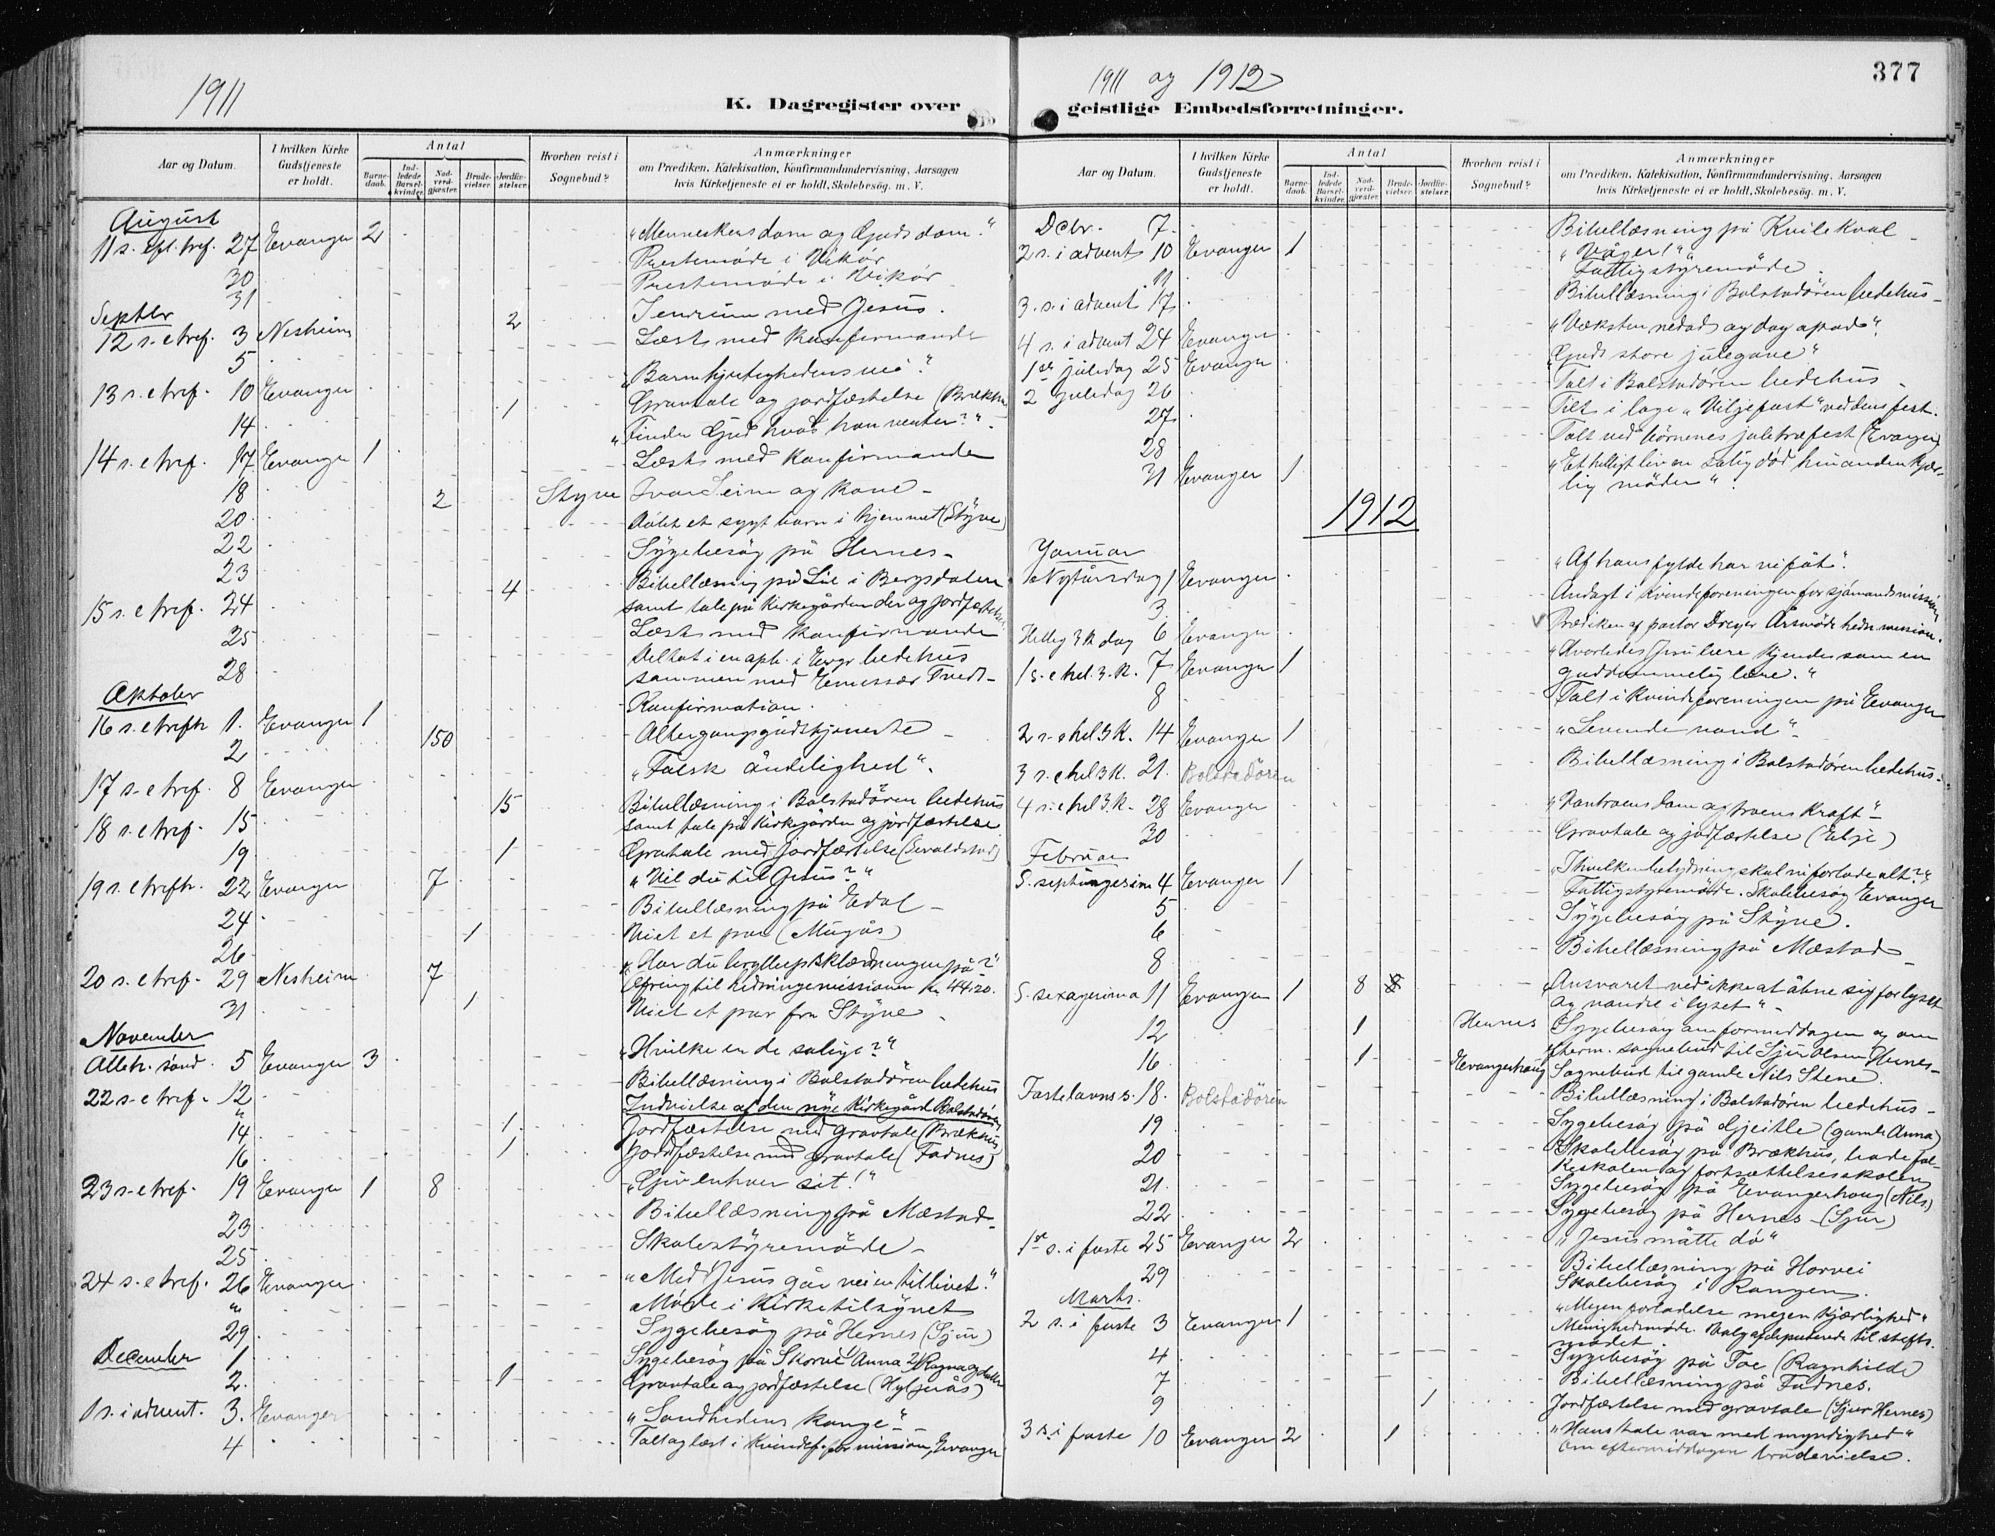 1911
K. Dagregister over
Aar og Datum.
I hvilken Kirke Gudstjeneste er holdt.
Antal
Barnedaab.
Indledede Barselkvinder.
Nadverdgjæster.
Brudevielser.
Jordfæstelser.
Hvorhen reist i Sognebud?
Anmærkninger
om Prædiken, Katekisation, Konfirmandundervisning, Aarsagen
hvis Kirketjeneste ei er holdt, Skolebesøg. m. V.
August
11 s. eft. tref. 27 Evanger 2 "Menneskers dom og Guds dom."
30 Prestemøde i Vikør
31 Prestemøde i Vikør
Septbr
12 s. e tref. 3 Nesheim 2 Jenrum med Jesus.
5 Læst med konfirmande
13 s. e tref. 10 Evanger "Barmhjertighedens vei."
14 1 Gravtale og jordfæstelse (Brækhus
14 s. e tref. 17 Evanger 1 "Finder Gud hvad han venter?"
18 Læst med konfirmande
20 2 Styve Ivar Seim og kone
22 døbt et sygt barn i hjemmet (Styve)
23 Sygebesøg på Hernes
15 s. e tref. 24 4 Bibellæsning på Lie i Bergsdalen
samt tale på kirkegården der og jordfæstelse.
25 Læst med konfirmande
28 Deltat i en opb. i Evgr bedehus
sammen med Emissær Tvedt
Oktober
16 s. e trefh 1. Evanger 1 Konfirmation.
2 150 Altergangsgudstjeneste
17 s. e tref. 8 Evanger "Falsk åndelighed".
18 s. e tref. 15 15 Bibellæsning i Bolstadøren bedehus
samt tale på kirkegården og jordfæstelse
19 1 Gravtale med Jordfæstelse (Evaldstad)
19 s. e trefh. 22 Evanger 7 "Vil du til Jesus?"
24 Bibellæsning på Edal
26 1 Viet et par (Mugås)
20 s. e tref. 29 Nesheim 7 "Har du bryllupsklædningen på?"
Ofring til hedningemissionen kr 44.20.
31 1 Viet et par fra Styve
November
Alleh. sønd. 5 Evanger 3 "Hvilke en de salige?"
22 s. e tref. 12 Bibellæsning i Bolstadøren bedehus
" Indvielse af den nye kirkegård Bolstadøren
14 1 Jordfæstelse med gravtale (Brækhus
16 1 Jordfæstelse med gravtale (Fadnes)
23 s. e tref. 19 Evanger 1 8 "Giv enhver sit!"
23 Bibellæsning på Mæstad
25 Skolestyremøde
24 s. e tref. 26 Evanger "Med Jesus går veien til livet."
" Møde i kirketilsynet
29 Sygebesøg på Hernes (Sjur)
December
1 Sygebesøg på Skorve Anna
2. 1 Gravtale og jordfæstelse (Hyljerås)
1 s. i advent. 3. Evanger "Sandhedens konge".
4 Talt og læst i kvindef. for mission, Evanger
1911 og 1912
377
geistlige Embedsforretninger.
Aar og Datum.
I hvilken Kirke Gudstjeneste er holdt.
Antal
Barnedaab.
Indledede Barselkvinder.
Nadverdgjæster.
Brudevielser.
Jordfæstelser.
Hvorhen reist i Sognebud?
Anmærkninger
om Prædiken, Katekisation, Konfirmandundervisning, Aarsagen
hvis Kirketjeneste ei er holdt, Skolebesøg. m. V.
Dcbr. 7. Bibellæsning på Kvilekval
2 s. i advent 10 Evanger 1 "Våger!"
11 Fattigstyremøde
3. s. i advent 17 Bibellæsning i Bolstadøren bedehus
4 s. i advent 24 Evanger "Væksten nedad og opad".
1ste juledag 25 Evanger "Guds store julegave"
2 juledag 26 Talt i Bolstadøren bedehus
27 Talt i loge "Viljefast" ved dens fest.
28 Talt ved børnenes juletræfest (Evanger)
31 Evanger 1 "Et helligt liv en salig død hinanden kjær-
lig møder".
1912
Januar
Nytårsdag 1 Evanger "Af hans fylde har vi fåt".
3. Andagt i kvindeforeningen for sjømandsmission
Hellig 3 K dag 6 Evanger Prædiken af pastor Dreyer Årsmøde hedn. mission.
1 s. e hel. 3. K. 7 Evanger 1 "Hvorledes Jesu lære kjendes som en
guddommelig lære."
8 Talt i kvindeforeningen på Evanger
2 s. e hel 3 K. 14 Evanger 1 "Levende vand"
3 s. e hel 3 K. 21. Bolstadøren Bibellæsning i Bolstadøren bedehus
4 s. e hel 3 K. 28 Evanger "Vantroens dom og troens kraft"
30 Gravtale og jordfæstelse (Eelje)
Februar
S. septuagesima 4 Evanger 1 "I hvilken betydning skal vi forlade alt?"
5 Fattigstyremøde. Skolebesøg Evanger
6 Sygebesøg på Styve.
8 Bibellæsning på Mæstad
S. sexagesima 11 Evanger 1 8 Ansvaret ved ikke at åbne sig for lyset
og vandre i lyset"
12 1 Hernes Sygebesøg om formiddagen og om
efterm. sognebud til Sjur Olsen Hernes
16 1 Evangerhaug Sognebud til gamle Nils Stene.
Fastelavns s. 18. Bolstadøren Bibellæsning i Bolstadøren bedehus
19 Sygebesøg på Gjeitle (gamle Anna)
20 Skolebesøg på Brækhus, både fol-
keskolen og fortsættelsesskolen
21. Sygebesøg på Evangerhaug (Nils)
22 Sygebesøg på Hernes (Sjur)
1ste s. i faste 25 Evanger 2 "Jesus måtte dø"
29 Bibellæsning på Horvei
Skolebesøg i
Marts.
2 s. i faste 3 Evanger 1 "Megen forladelse megen kjærlighed"
Menighedsmøde. Valg af deputerede til stifts-
mødet.
4 Sygebesøg på Toe (Ragnhilde)
7 Bibellæsning på Fadnes.
9 1 Jordfæstelse med gravtale (Sjur Hernes)
3 s. i faste 10 Evanger 2 1 "Hans tale var med myndighed"
Om eftermiddagen brudevielse.